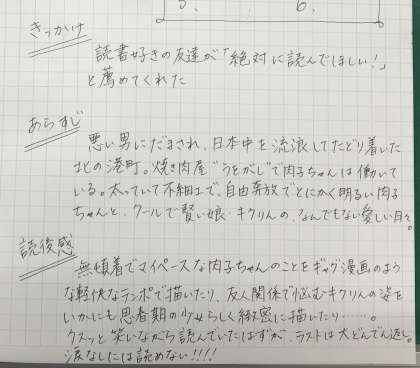 5. 6.
きっかけ
読書好きの友達が「絶対に読んでほしい!」
と薦めてくれた
あらすじ
悪い男にだまされ、日本中を流浪してたどり着いた
北の港町。焼き肉屋"うをがし"で肉子ちゃんは働いて
いる。太っていて不細工で、自由奔放でとにかく明るい肉子
ちゃんと、クールで賢い娘・キクりんの、なんでもない愛しい日々。
読後感
無頓着でマイペースな肉子ちゃんのことをギャグ漫画のよう
な軽快なテンポで描いたり、友人関係で悩むキクりんの姿を
いかにも思春期の少女らしく緻密に描いたり……。
クスッと笑いながら読んでいたはずが、ラストは大どんでん返し。
涙なしには読めない!!!!